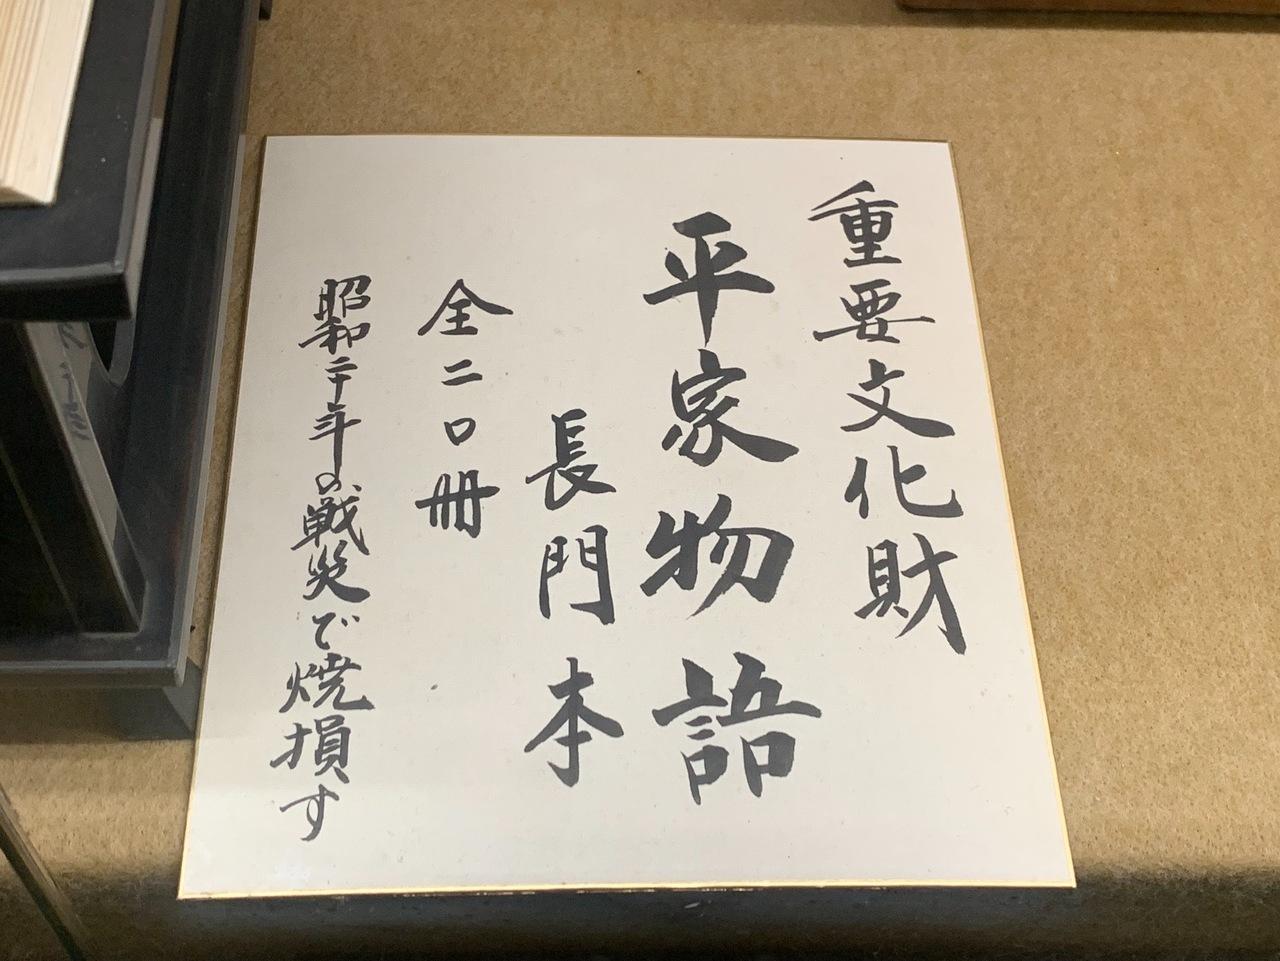 重要文化財
平家物語
長門本
全二〇冊
昭和二十年の戦災で焼損す